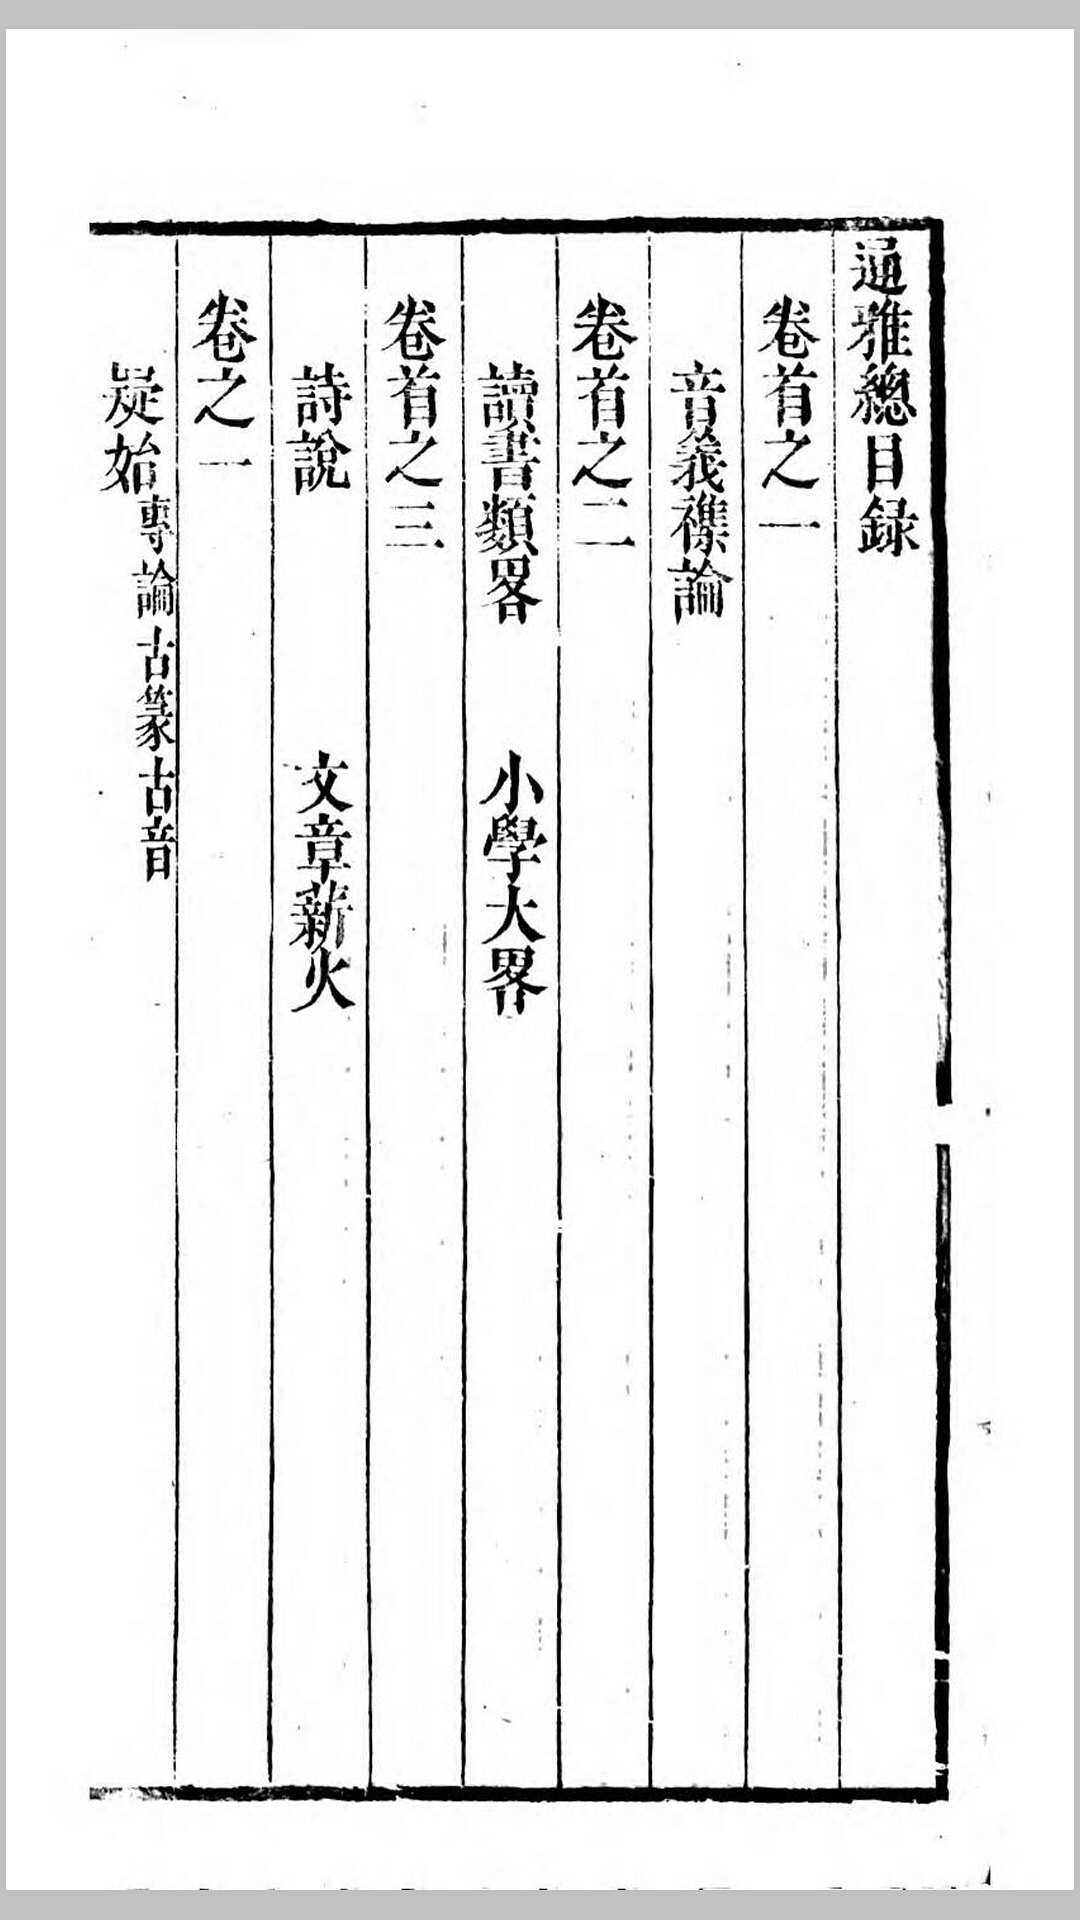 通雅總目録
卷首之一
音義襍論
卷首之二
讀書類畧　小學大畧
卷首之三
詩說　文章薪火
卷之一
疑始專論古篆古音